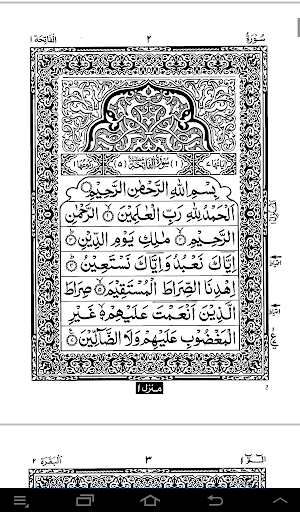 سُوۡرَةُ ٢ اَلۡفَاتِحَة ١
(١) سُوۡرَةُ الۡفَاتِحَةِ (٥)
بِسۡمِ اللهِ الرَّحۡمٰنِ الرَّحِيۡمِ
اَلۡحَمۡدُ لِلّٰهِ رَبِّ الۡعٰلَمِيۡنَ ۙ الرَّحۡمٰنِ
الرَّحِيۡمِ ۙ مٰلِكِ يَوۡمِ الدِّيۡنِ
اِيَّاكَ نَعۡبُدُ وَاِيَّاكَ نَسۡتَعِيۡنُ
اِهۡدِنَا الصِّرَاطَ الۡمُسۡتَقِيۡمَ ۙ صِرَاطَ
الَّذِيۡنَ اَنۡعَمۡتَ عَلَيۡهِمۡ ۙ غَيۡرِ
الۡمَغۡضُوۡبِ عَلَيۡهِمۡ وَلَا الضَّآلِّيۡنَ
منزل ١
2
الٓمّٓ ١ ٣ اَلۡبَقَرَة ٢